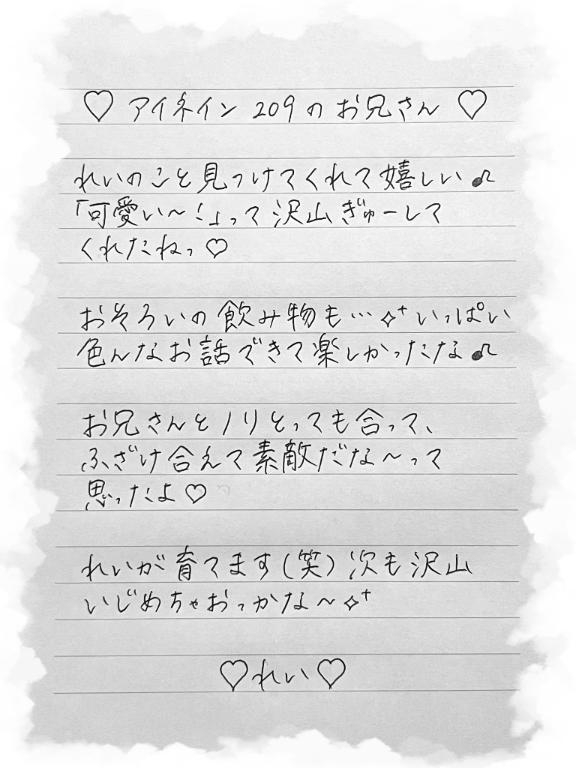 ♡ アイネイン 209 の お兄さん ♡
れいのこと見つけてくれて嬉しい♪
「可愛い〜!」って沢山ぎゅーして
くれたねっ♡
おそろいの飲み物も…✧⁺いっぱい
色んなお話できて楽しかったな♪
お兄さんとノリとっても合って、
ふざけ合えて素敵だな〜って
思ったよ♡
れいが育てます(笑)次も沢山
いじめちゃおっかな〜✧⁺
♡れい♡